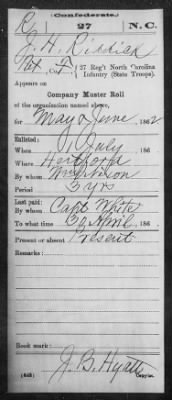 (Confederate.)
R 27 N.C.
J. H. Riddick
Pvt, Co. F, 27 Reg't North Carolina
Infantry (State Troops)
Appears on
Company Muster Roll
of the organization named above,
for May & June, 1862
Enlisted:
When July, 186
Where Hertford
By whom
Period 3 yrs
Last paid:
By whom Capt White
To what time 30 April, 186
Present or absent Present
Remarks:
Book mark:
J. B. Hyatt
(642) Copyist.